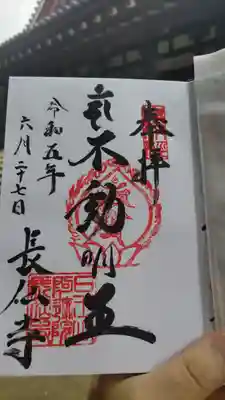 奉拝
不動明王
令和五年
六月二十七日
長伝寺